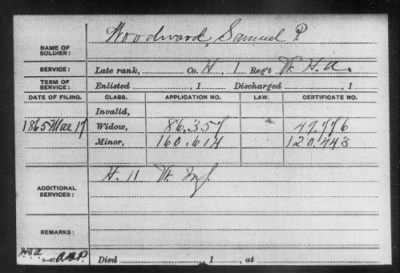 Woodward, Samuel P.
NAME OF SOLDIER:
SERVICE: Late rank, Co. H, 1 Reg't Vt. H.A.
TERM OF SERVICE: Enlisted , 1 Discharged , 1
DATE OF FILING. CLASS. APPLICATION NO. LAW. CERTIFICATE NO.
Invalid,
1865 Mar 17 Widow, 86.357 49.776
Minor, 160.614 120.443
ADDITIONAL SERVICES: H. 11 Vt. Inf.
REMARKS:
Died , 1 , at